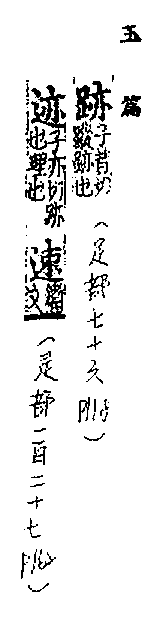 玉篇
跡子昔切蹤跡也(足部七十六)
迹子亦切跡也理也速籀文(辵部一百二十七)